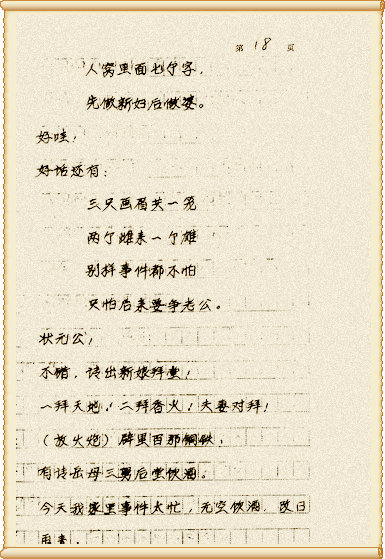 第 18 页
人窝里面七个字,
先做新妇后做婆。
好哇!
好话还有:
三只画眉共一笼
两个雌来一个雄
别样事件都不怕
只怕后来要争老公。
状元公!
不错,请出新娘拜堂!
一拜天地!二拜香火!夫妻对拜!
(放火炮)辟里百那铜铳!
有请岳母三舅后堂饮酒。
今天我家里事件太忙,无空饮酒,改日
再来!